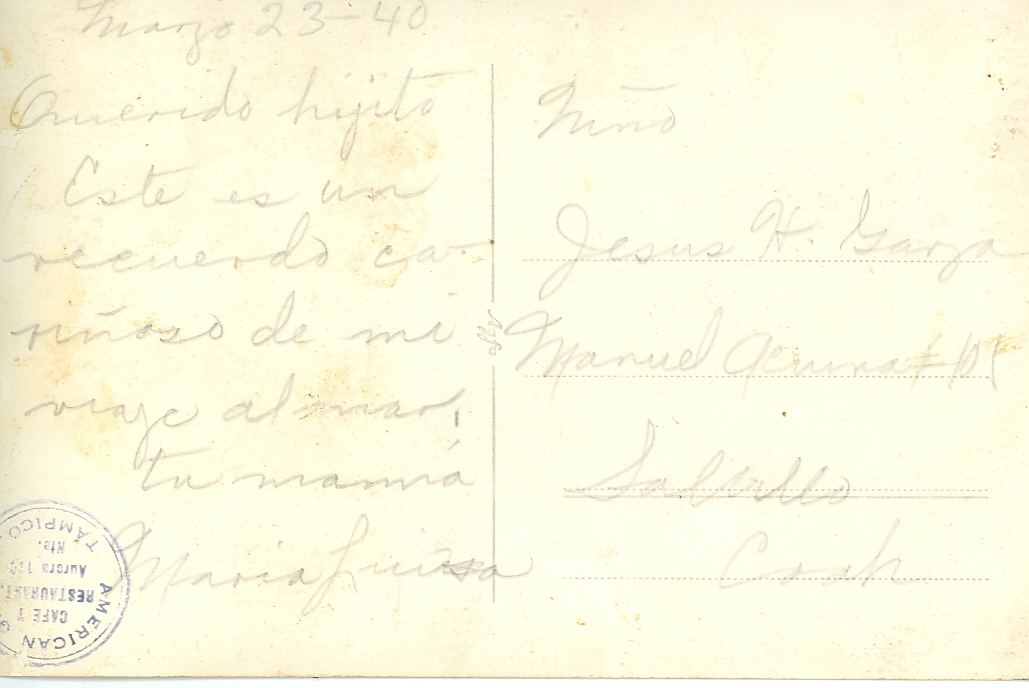 Marzo 23-40
Querido hijito
Este es un
recuerdo ca-
riñoso de mi
viaje al mar,
tu mamá
Maria Luisa
Niño
Jesus H. Garza
Manuel Acuna
Saltillo
Coah
AMERICAN
CAFE Y
RESTAURANT.
Aurora
Nte.
TAMPICO